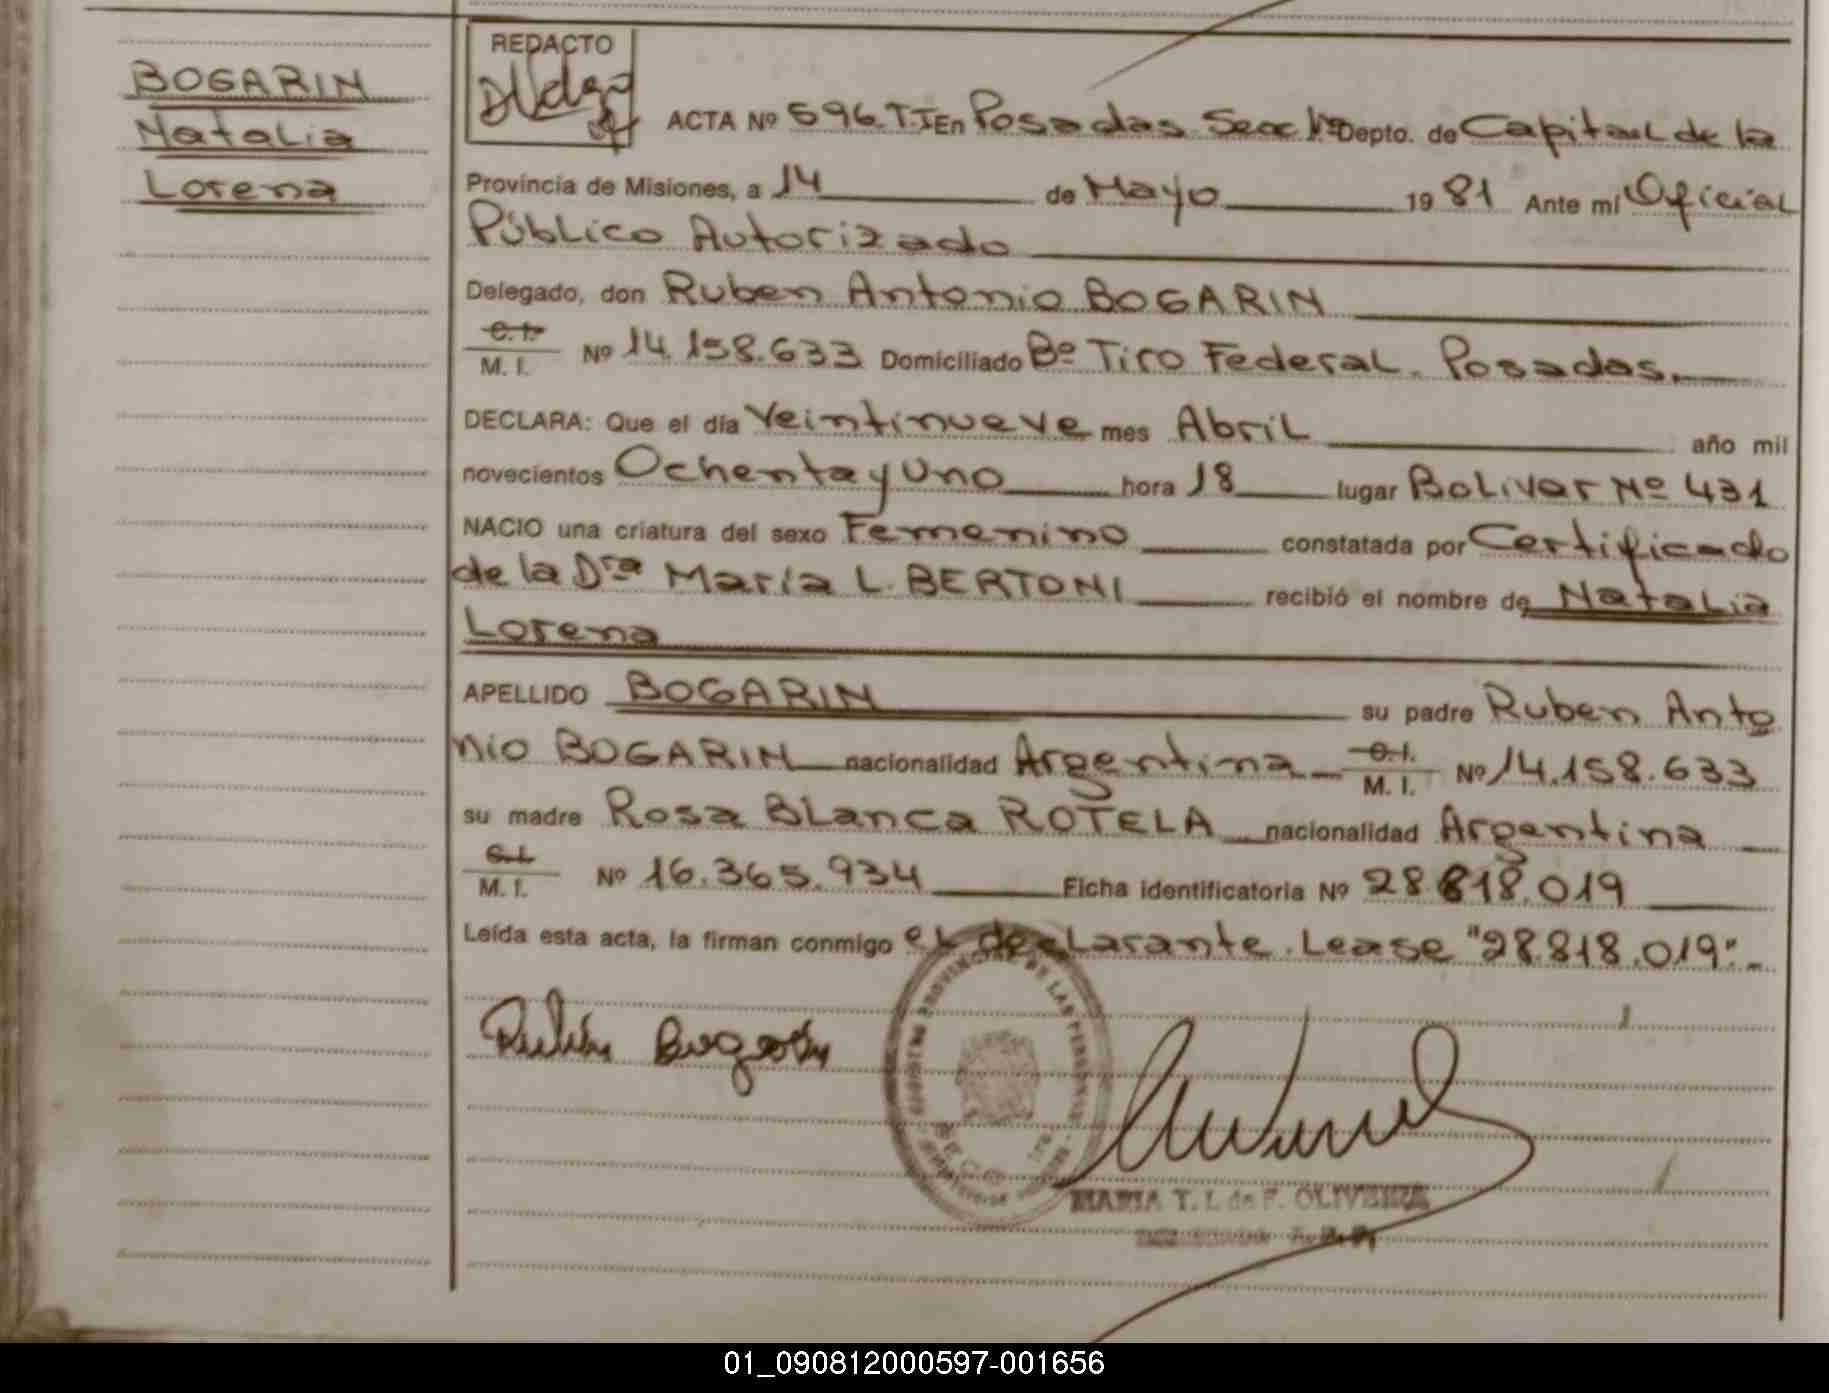 BOGARIN
Natalia
Lorena
REDACTO
ACTA Nº 596.TI En Posadas Secc 1ª Depto. de Capital de la
Provincia de Misiones, a 14 de Mayo 1981 Ante mí Oficial
Público Autorizado
Delegado, don Ruben Antonio BOGARIN
C. I.
M. I. Nº 14.158.633 Domiciliado Bº Tiro Federal. Posadas.
DECLARA: Que el día Veintinueve mes Abril año mil
novecientos Ochenta y Uno hora 18 lugar Bolivar Nº 431
NACIO una criatura del sexo Femenino constatada por Certificado
de la Dra María L. BERTONI recibió el nombre de Natalia
Lorena
APELLIDO BOGARIN su padre Ruben Anto
nio BOGARIN nacionalidad Argentina C. I.
M. I. Nº 14.158.633
su madre Rosa Blanca ROTELA nacionalidad Argentina
C. I.
M. I. Nº 16.365.934 Ficha identificatoria Nº 28.818.019
Leída esta acta, la firman conmigo el declarante. Lease "28.818.019".
Rubén Bogarín
REGISTRO PROVINCIAL DE LAS PERSONAS
MARIA T. I. de F. OLIVEIRA
01_090812000597-001656